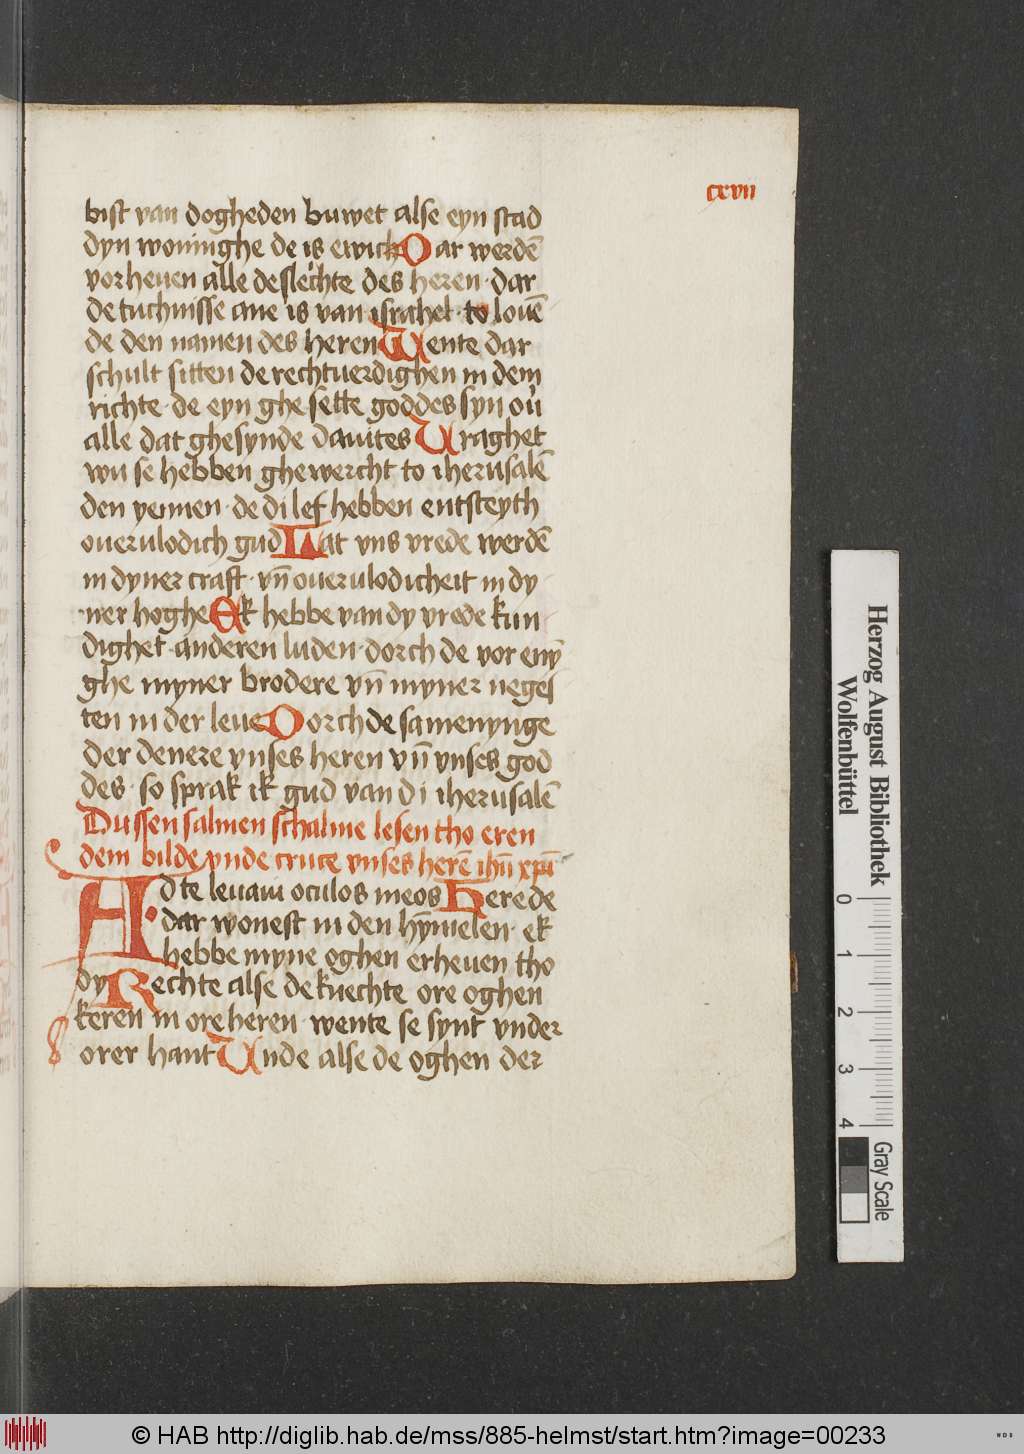 cxvii
bist van dogheden buwet alse eyn stad
dyn woninghe de is ewich Dar werdē
vorheuen alle de slechte des heren · dar
de tuchnisse ane is van israhel · to louē
de den namen des heren Wente dar
schult sitten de rechtuerdighen in dem
richte · de eyn ghe sette goddes syn ou̇
alle dat ghesynde dauites Vraghet
wu se hebben ghewercht to iherusalē
den yennen · de di lef hebben entsteyth
ouerulodich gud Lat vns vrede werdē
in dyner craft · vn̄ ouerulodicheit in dy
ner hoghe Ek hebbe van dy vrede kun
dighet · anderen luden · dorch de vor enȳ
ghe myner brodere vn̄ myner neges
ten in der leue Dorch de samenynge
der denere vnses heren vn̄ vnses god
des · so sprak ik gud van di iherusalē
Dussen salmen schalme lesen tho eren
dem bilde vnde cruce vnses herē ihū xpī
Ad te leuaui oculos meos Here de
dar wonest in den hȳmelen · ek
hebbe myne oghen erheuen tho
dy Rechte alse de knechte ore oghen
keren in ore heren · wente se synt vnder
orer hant Vnde alse de oghen der
Herzog August Bibliothek
Wolfenbüttel
0 1 2 3 4
Gray Scale
© HAB http://diglib.hab.de/mss/885-helmst/start.htm?image=00233
WDB